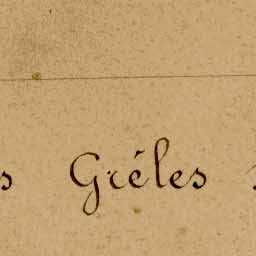 s Gréles